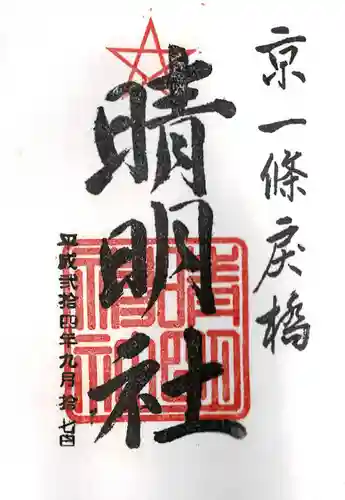 京一條戻橋
晴明社
平成弐拾四年九月拾七日